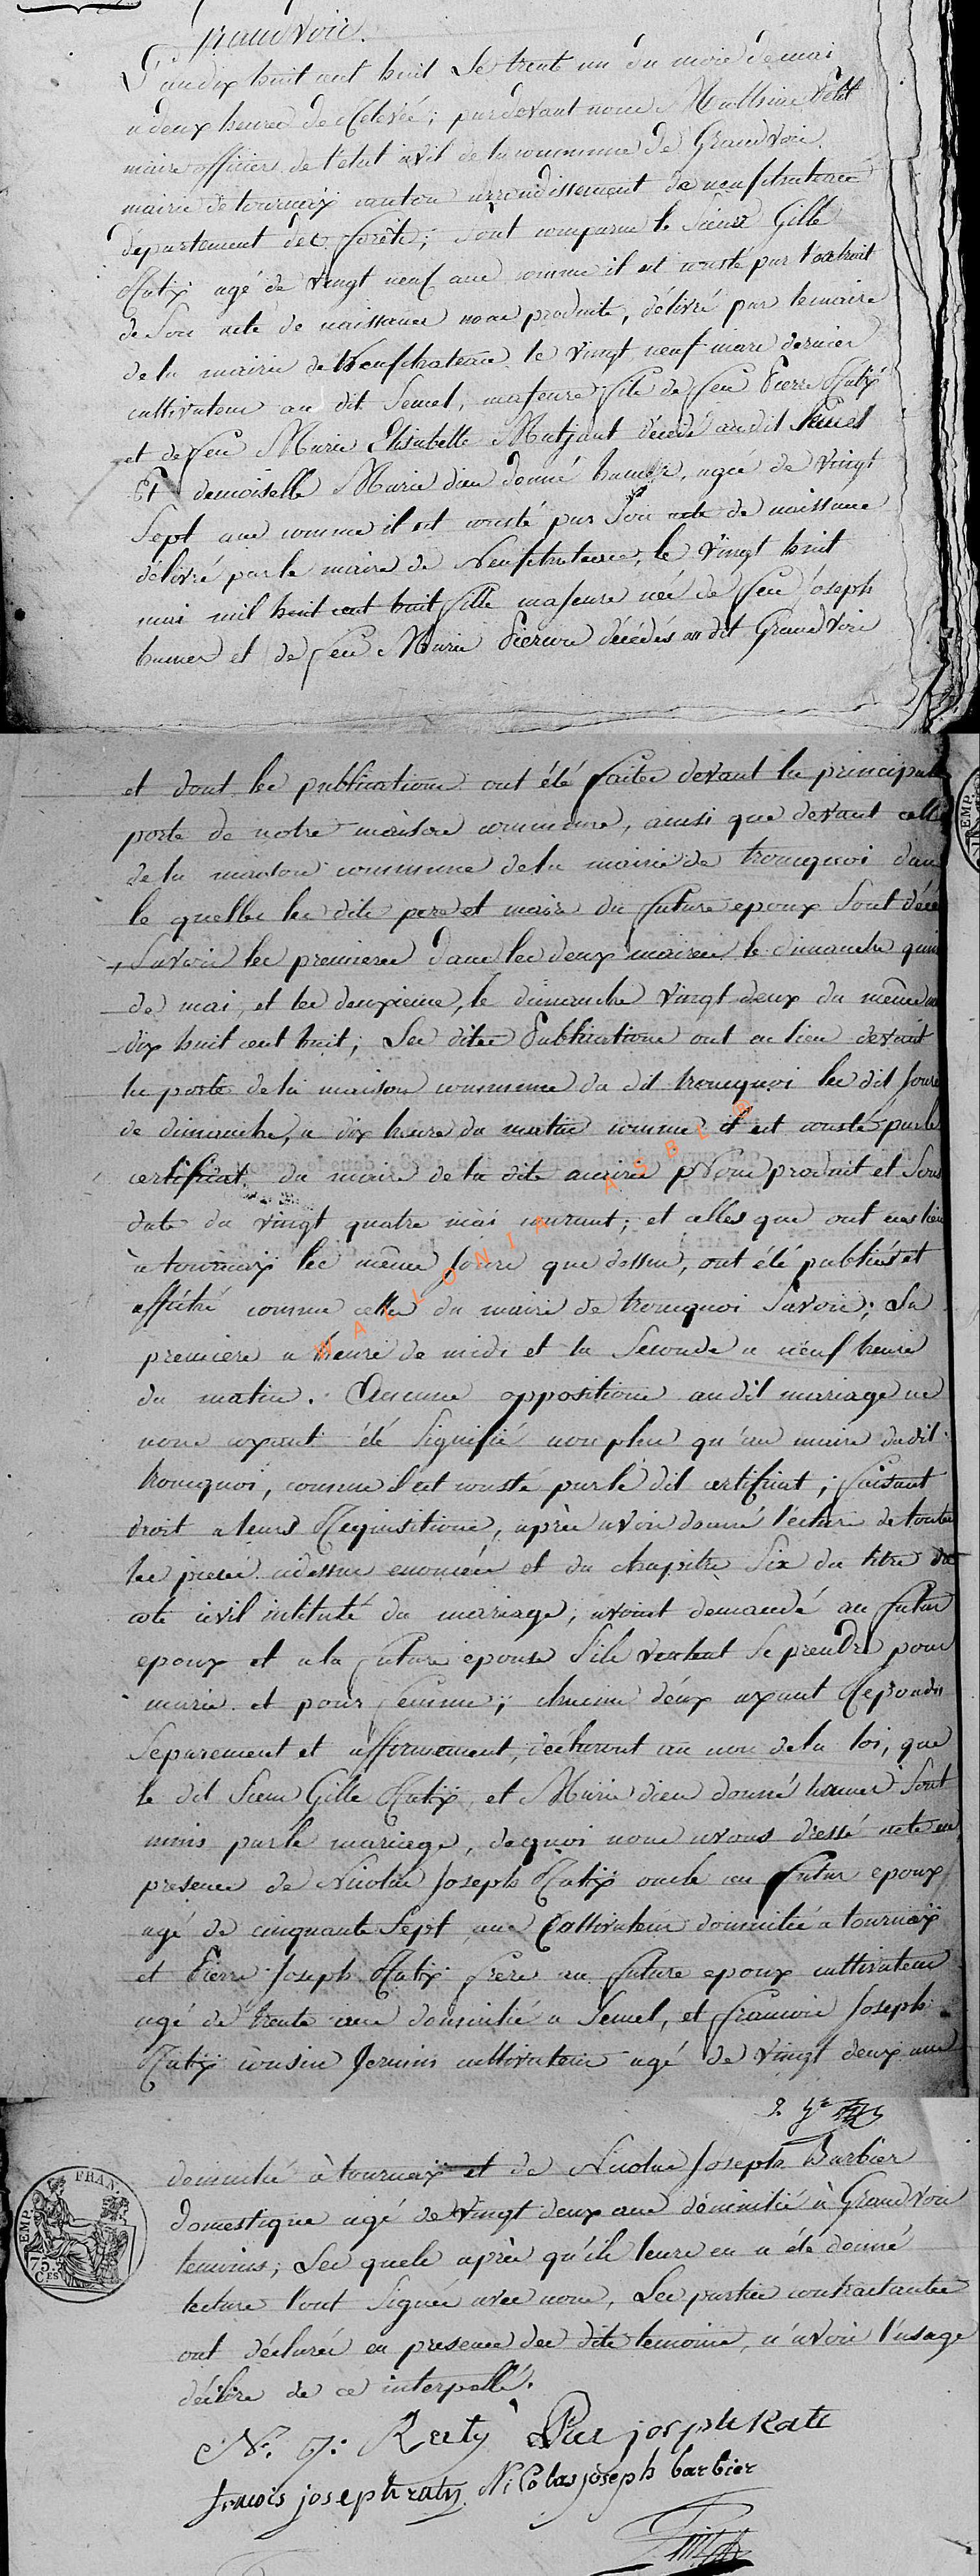 Grandvoir.
L'an dix huit cent huit Le trente un du mois de mai
a deux heures de Relevée; pardevant nous Mathieu Petit
maire officier de l'etat civil de la commune de Grandvoir
mairie de tournaÿ canton arrondissement de neufchateau
département des forêts; sont comparus le sieur Gille
Ratÿ agé de vingt neuf ans comme il est consté par l'extrait
de Son acte de naissance nous produite, délivré par le maire
de la mairie de Neufchateau le vingt neuf mars dernier
cultivateur au dit Semel, majeure fils de feu Pierre Ratÿ
et de feu Marie Elisabelle Matjant décédé au dit Semel
Et demoiselle Marie dieu donné hamer, agée de vingt
Sept ans comme il est consté par Son acte de naissance
délivré par le maire de Neufchateau, le vingt huit
mai mil huit cent huit fille majeure née de feu Joseph
hamer et de feu Marie Pierson décédés au dit Grandvoir
et dont les publications ont été faites devant la principale
porte de notre maison commune, ainsi que devant celle
de la maison commune de la mairie de tronquoi dans
le quelles les dits pere et maire du future epoux Sont décé
Savoir les premieres dans les deux mairies le dimanche quin
de mai, et les deuxieme, le dimanche vingt deux du même
dix huit cent huit; Les dites Publications ont eu lieu devant
la porte de la maison commune du dit tronquoi les dit Jours
de dimanche, a dix heure du matin comme il est consté par le
certificat du maire de la dite mairie Nous produit et Sous
date du vingt quatre mai courant; et celles que ont eues lieu
à tournaÿ les même Jours que dessus, ont été publiés et
affiché comme celles du maire de tronquoi Savoir; La
premiere a heure de midi et la Seconde a neuf heure
du matin. Aucune oppositions audit mariage ne
nous ayant été Signifié non plus qu'au maire dudit
tronquoi, comme il est consté par le dit certificat; faisant
droit a leurs Requisitions, après avoir donné lecture de toutes
les pieces cidessus enoncées et du chapitre Six du titre du
code civil intitulé du mariage, avoint demandé au futur
epoux et a la future epouse S'ils veulent Se prendre pour
marie et pour femme; chacun d'eux ayant Repondu
Separement et affirmement, déclaront au nom de la loi, que
le dit Sieur Gille Ratÿ et Marie dieu donné hamer Sont
unis par le mariage, dequoi nous avons dressé acte en
presence de Nicolas Joseph Ratÿ oncle au futur epoux
agé de cinquante Sept ans Cultivateur domicilié a tournaÿ
et Pierre Joseph Ratÿ frere au future epoux cultivateur
agé de trente ans domicilié a Semel, et francois Joseph
Ratÿ cousin Jermin cultivateur agé de vingt deux ans
domicilié à tournaÿ et de Nicolas Joseph Barbier
Domestique agé de vingt deux ans domicilié à Grandvoir
temoins; Les quels après qu'ils leure en a été donné
lecture l'ont Signée avec nous, Les parties contractantes
ont déclarée en presence des dits temoins, n'avoir l'usage
décrire de ce interpellé.
N. J: Raty Pier joseph Rati
francois joseph raty Nicolas joseph barbier
TIMB. EMP. FRAN.
75. CES
WALLONIA ASBL ®